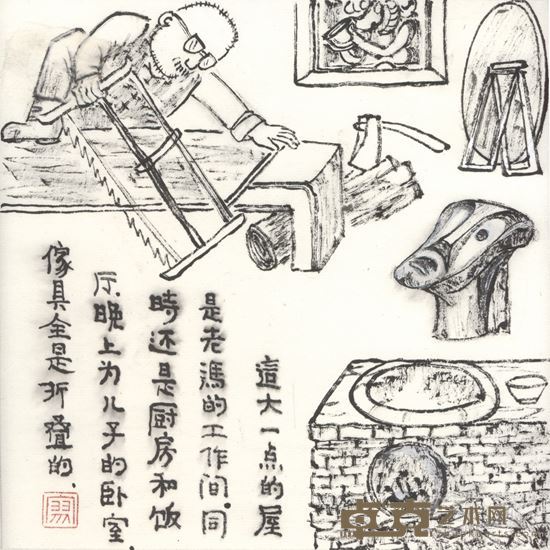 這大一点的屋
是老馮的工作间.同
時还是厨房和饭
厅.晚上为儿子的卧室.
傢具全是折叠的.
卓克艺术网